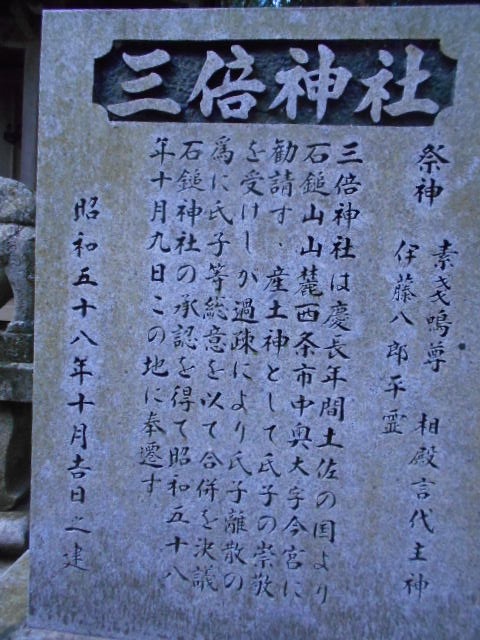 三倍神社
祭神 素戔嗚尊 相殿言代主神
伊藤八郎平霊
三倍神社は慶長年間土佐の国より
石鎚山山麓西条市中奥大字今宮に
勧請す、産土神として氏子の崇敬
を受けしが過疎により氏子離散の
為に氏子等総意を以て合併を決議
石鎚神社の承認を得て昭和五十八
年十月九日この地に奉遷す
昭和五十八年十月吉日之建